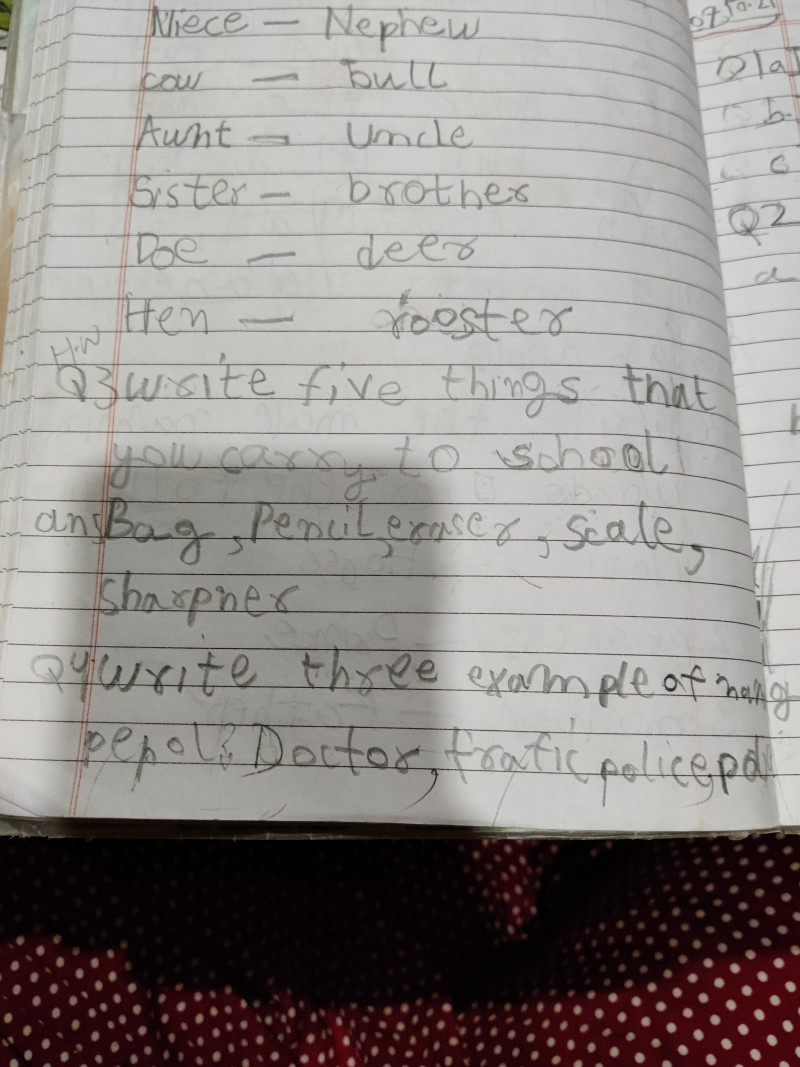 Niece - Nephew
cow - bull
Aunt - Uncle
Sister - brother
Doe - deer
Hen - rooster
H.W
Q3 write five things that
you carry to school
ans Bag, Pencil, eraser, scale,
sharpner
Q4 write three example of
pepol: Doctor, trafic police,
Q1a
b.
c
Q2
a